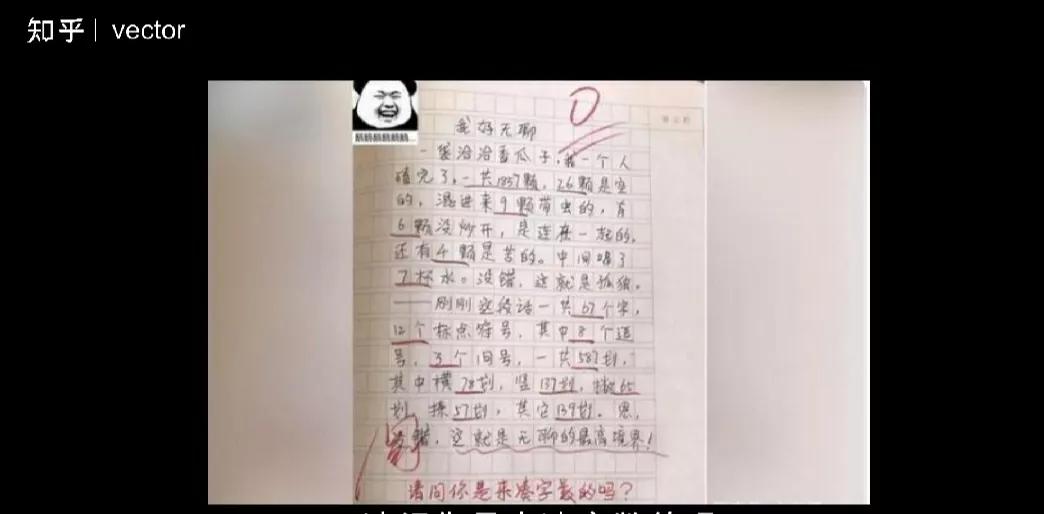 知乎 | vector
0
我好无聊
一袋洽洽香瓜子,我一个人
嗑完了,一共1857颗,26颗是空
的,混进来9颗带虫的,有
6颗没炒开,是连在一起的,
还有4颗是苦的。中间喝了
7杯水。没错,这就是孤独。
——刚刚这段话一共67个字,
12个标点符号,其中8个逗
号,3个问号,一共587划,
其中横78划,竖137划,撇65
划,捺57划,其它139划。恩,
没错,这就是无聊的最高境界!
阅
请问你是来凑字数的吗?